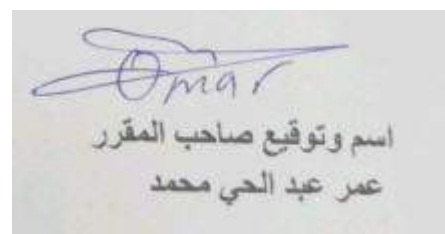 Omar
اسم وتوقيع صاحب المقرر
عمر عبد الحي محمد